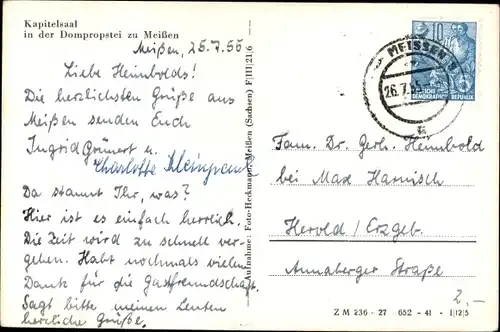 Kapitelsaal
in der Dompropstei zu Meißen
Meißen, 25.7.55
Liebe Heimbolds!
Die herzlichsten Grüße aus
Meißen senden Euch
Ingrid Grünert u.
Charlotte
Da staunt Ihr, was?
Hier ist es einfach herrlich.
Die Zeit wird zu schnell ver-
gehen. Habt nochmals vielen
Dank für die Gastfreundschaft.
Sagt bitte meinen Leuten
herzliche Grüße.
Aufnahme: Foto-Heckmann-Meißen (Sachsen) F III 21,6
10
DEUTSCHE
DEMOKRATISCHE REPUBLIK
MEISSEN
26.7.55
Fam. Dr. Gerh. Heimbold
bei Max Harnisch
Herold / Erzgeb.
Annaberger Straße
2,-
Z M 236 - 27 652 - 41 - 1 12 5